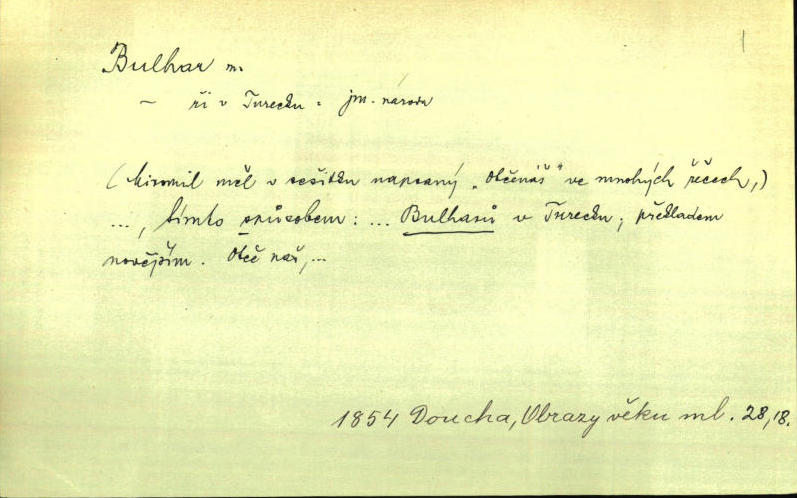 Bulhar m.
– ři v Turecku = jm. národu
(Miromil měl v sešitku napsaný „Otčenáš“ ve mnohých řečech,)
..., tímto způsobem: ... Bulharů v Turecku; překladem
novějším. Otče náš,...
1854 Doucha, Obrazy věku ml. 28, 18.